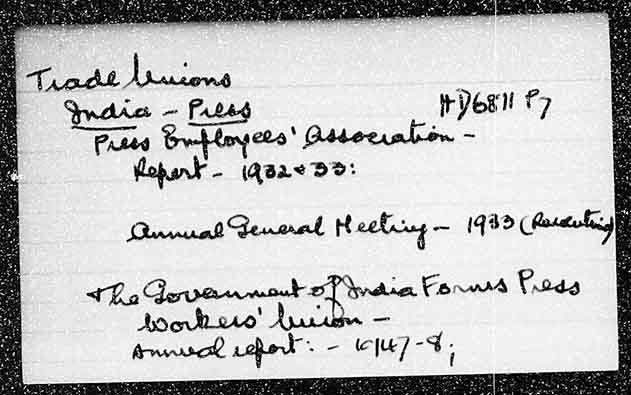 Trade Unions
India - Press HD6811 P7
Press Employees' Association -
Report - 1932 & 33:
Annual General Meeting - 1933 (
The Government of India Forms Press
Workers' Union -
Annual report: - 1947-8;